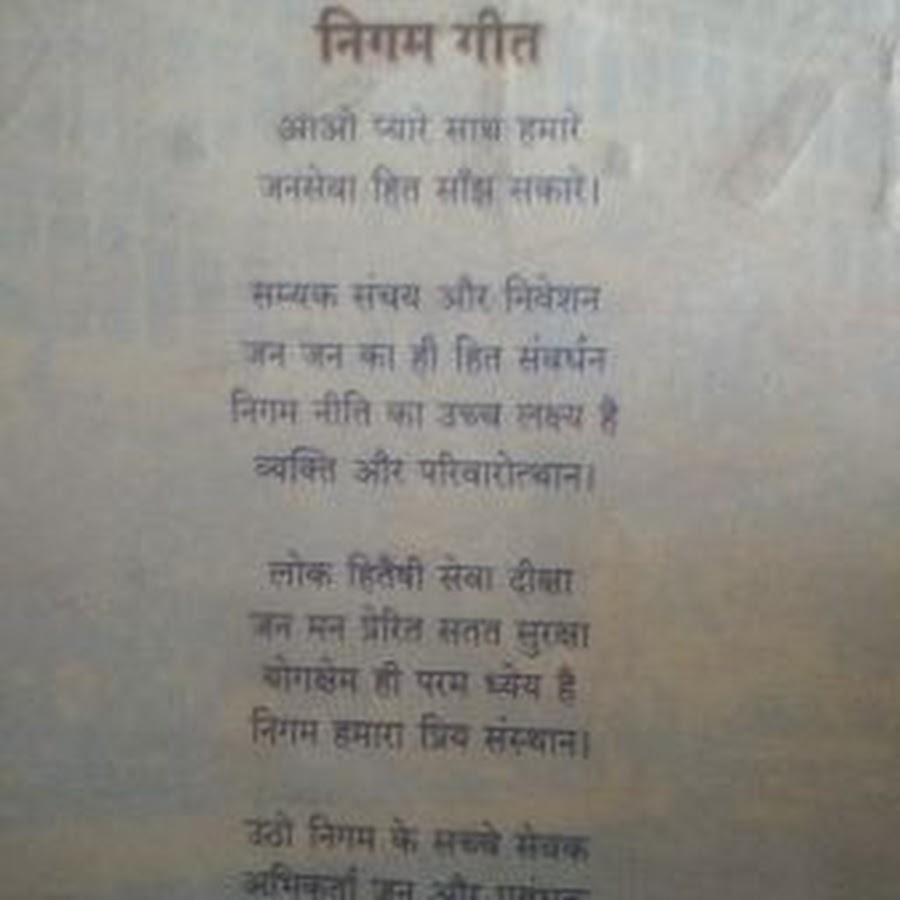 निगम गीत
आओ प्यारे साथ हमारे
जनसेवा हित साँझ सकारे।
सम्यक संचय और निवेशन
जन जन का ही हित संवर्धन
निगम नीति का उच्च लक्ष्य है
व्यक्ति और परिवारोत्थान।
लोक हितैषी सेवा दीक्षा
जन मन प्रेरित सतत सुरक्षा
योगक्षेम ही परम ध्येय है
निगम हमारा प्रिय संस्थान।
उठो निगम के सच्चे सेवक
अभिकर्ता जन और